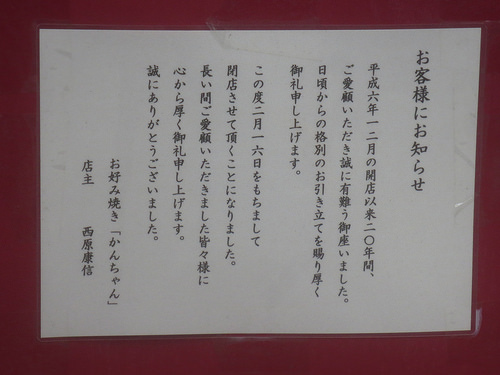 お客様にお知らせ
平成六年一二月の開店以来二〇年間、
ご愛顧いただき誠に有難う御座いました。
日頃からの格別のお引き立てを賜り厚く
御礼申し上げます。
この度二月一六日をもちまして
閉店させて頂くことになりました。
長い間ご愛顧いただきました皆々様に
心から厚く御礼申し上げます。
誠にありがとうございました。
お好み焼き「かんちゃん」
店主　西原康信